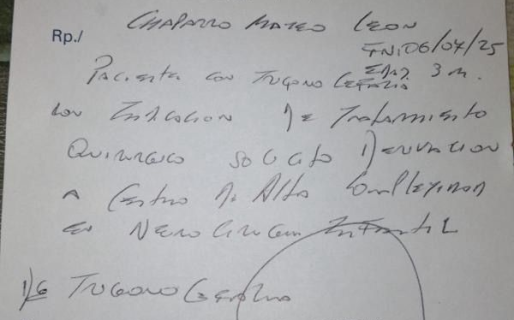 Rp./
CHAPARRO MATEO LEON
FN: 06/04/25
EDAD 3 m.
PACIENTE CON TRIGONOCEFALIA
CON INDICACION DE TRATAMIENTO
QUIRURGICO SOLICITO DERIVACION
A CENTRO DE ALTA COMPLEJIDAD
EN NEUROCIRUGIA INFANTIL
D/G TRIGONOCEFALIA